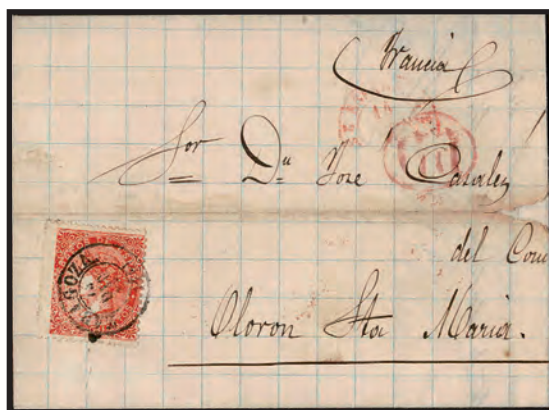 Francia
Sor Dn Jose Casalez
del Com
Oloron Sta Maria.
11
ZARAGOZA